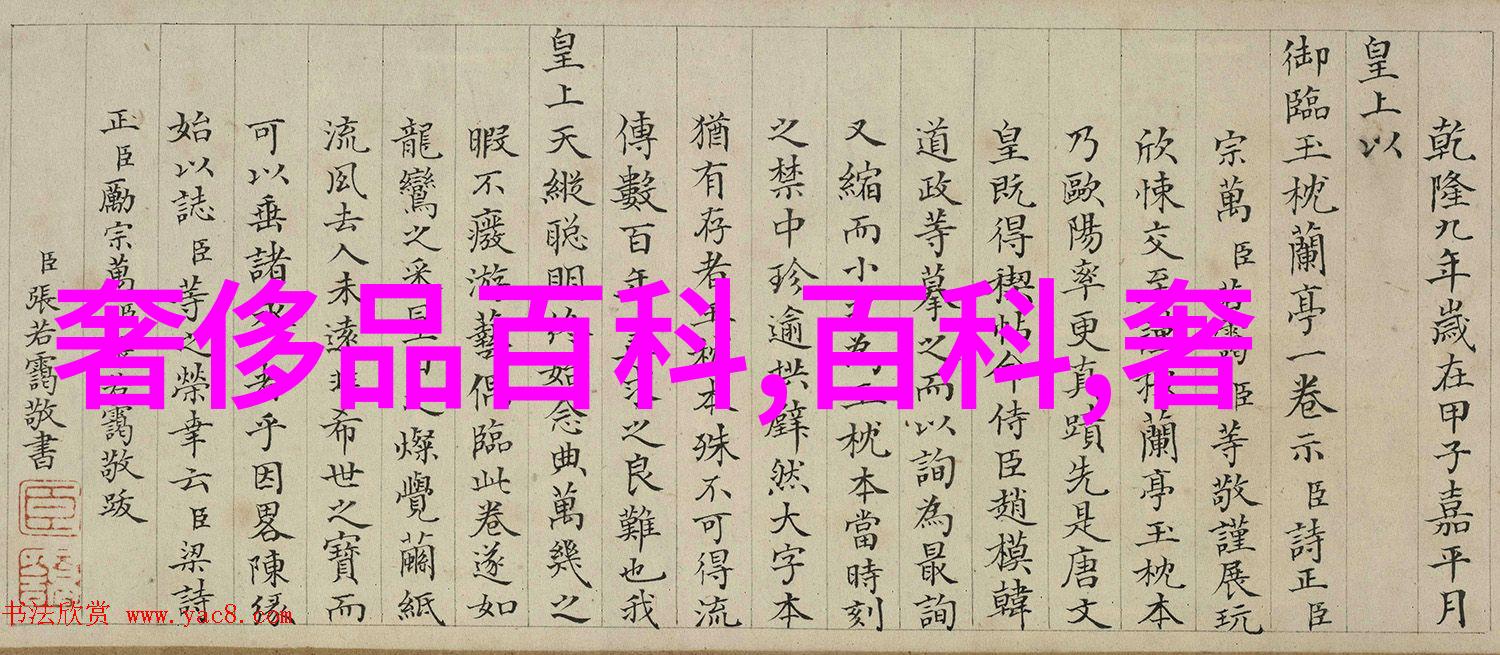 乾隆九年歲在甲子嘉平月
皇上以
御臨玉枕蘭亭一卷示臣詩正臣
宗萬臣若靄臣等敬謹展玩
欣悚交至謹按蘭亭玉枕本
乃歐陽率更真蹟先是唐文
皇既得禊帖命侍臣趙模韓
道政等摹之而以詢為最詢
又縮而小之為玉枕本當時刻
之禁中珍逾拱璧然大字本
猶有存者玉枕本殊不可得流
傳數百年求之良難也我
皇上天縱聰明終始念典萬幾之
暇不癈游藝偶臨此卷遂如
龍鸞之采星日之燦覺繭紙
流風去人未遠非希世之寶而
可以垂諸者乎因畧陳緣
始以誌臣等之榮幸云臣梁詩
正臣勵宗萬臣若靄敬跋
臣張若靄敬書
奢侈品百科,百科,奢
书法欣赏 www.yac8.com